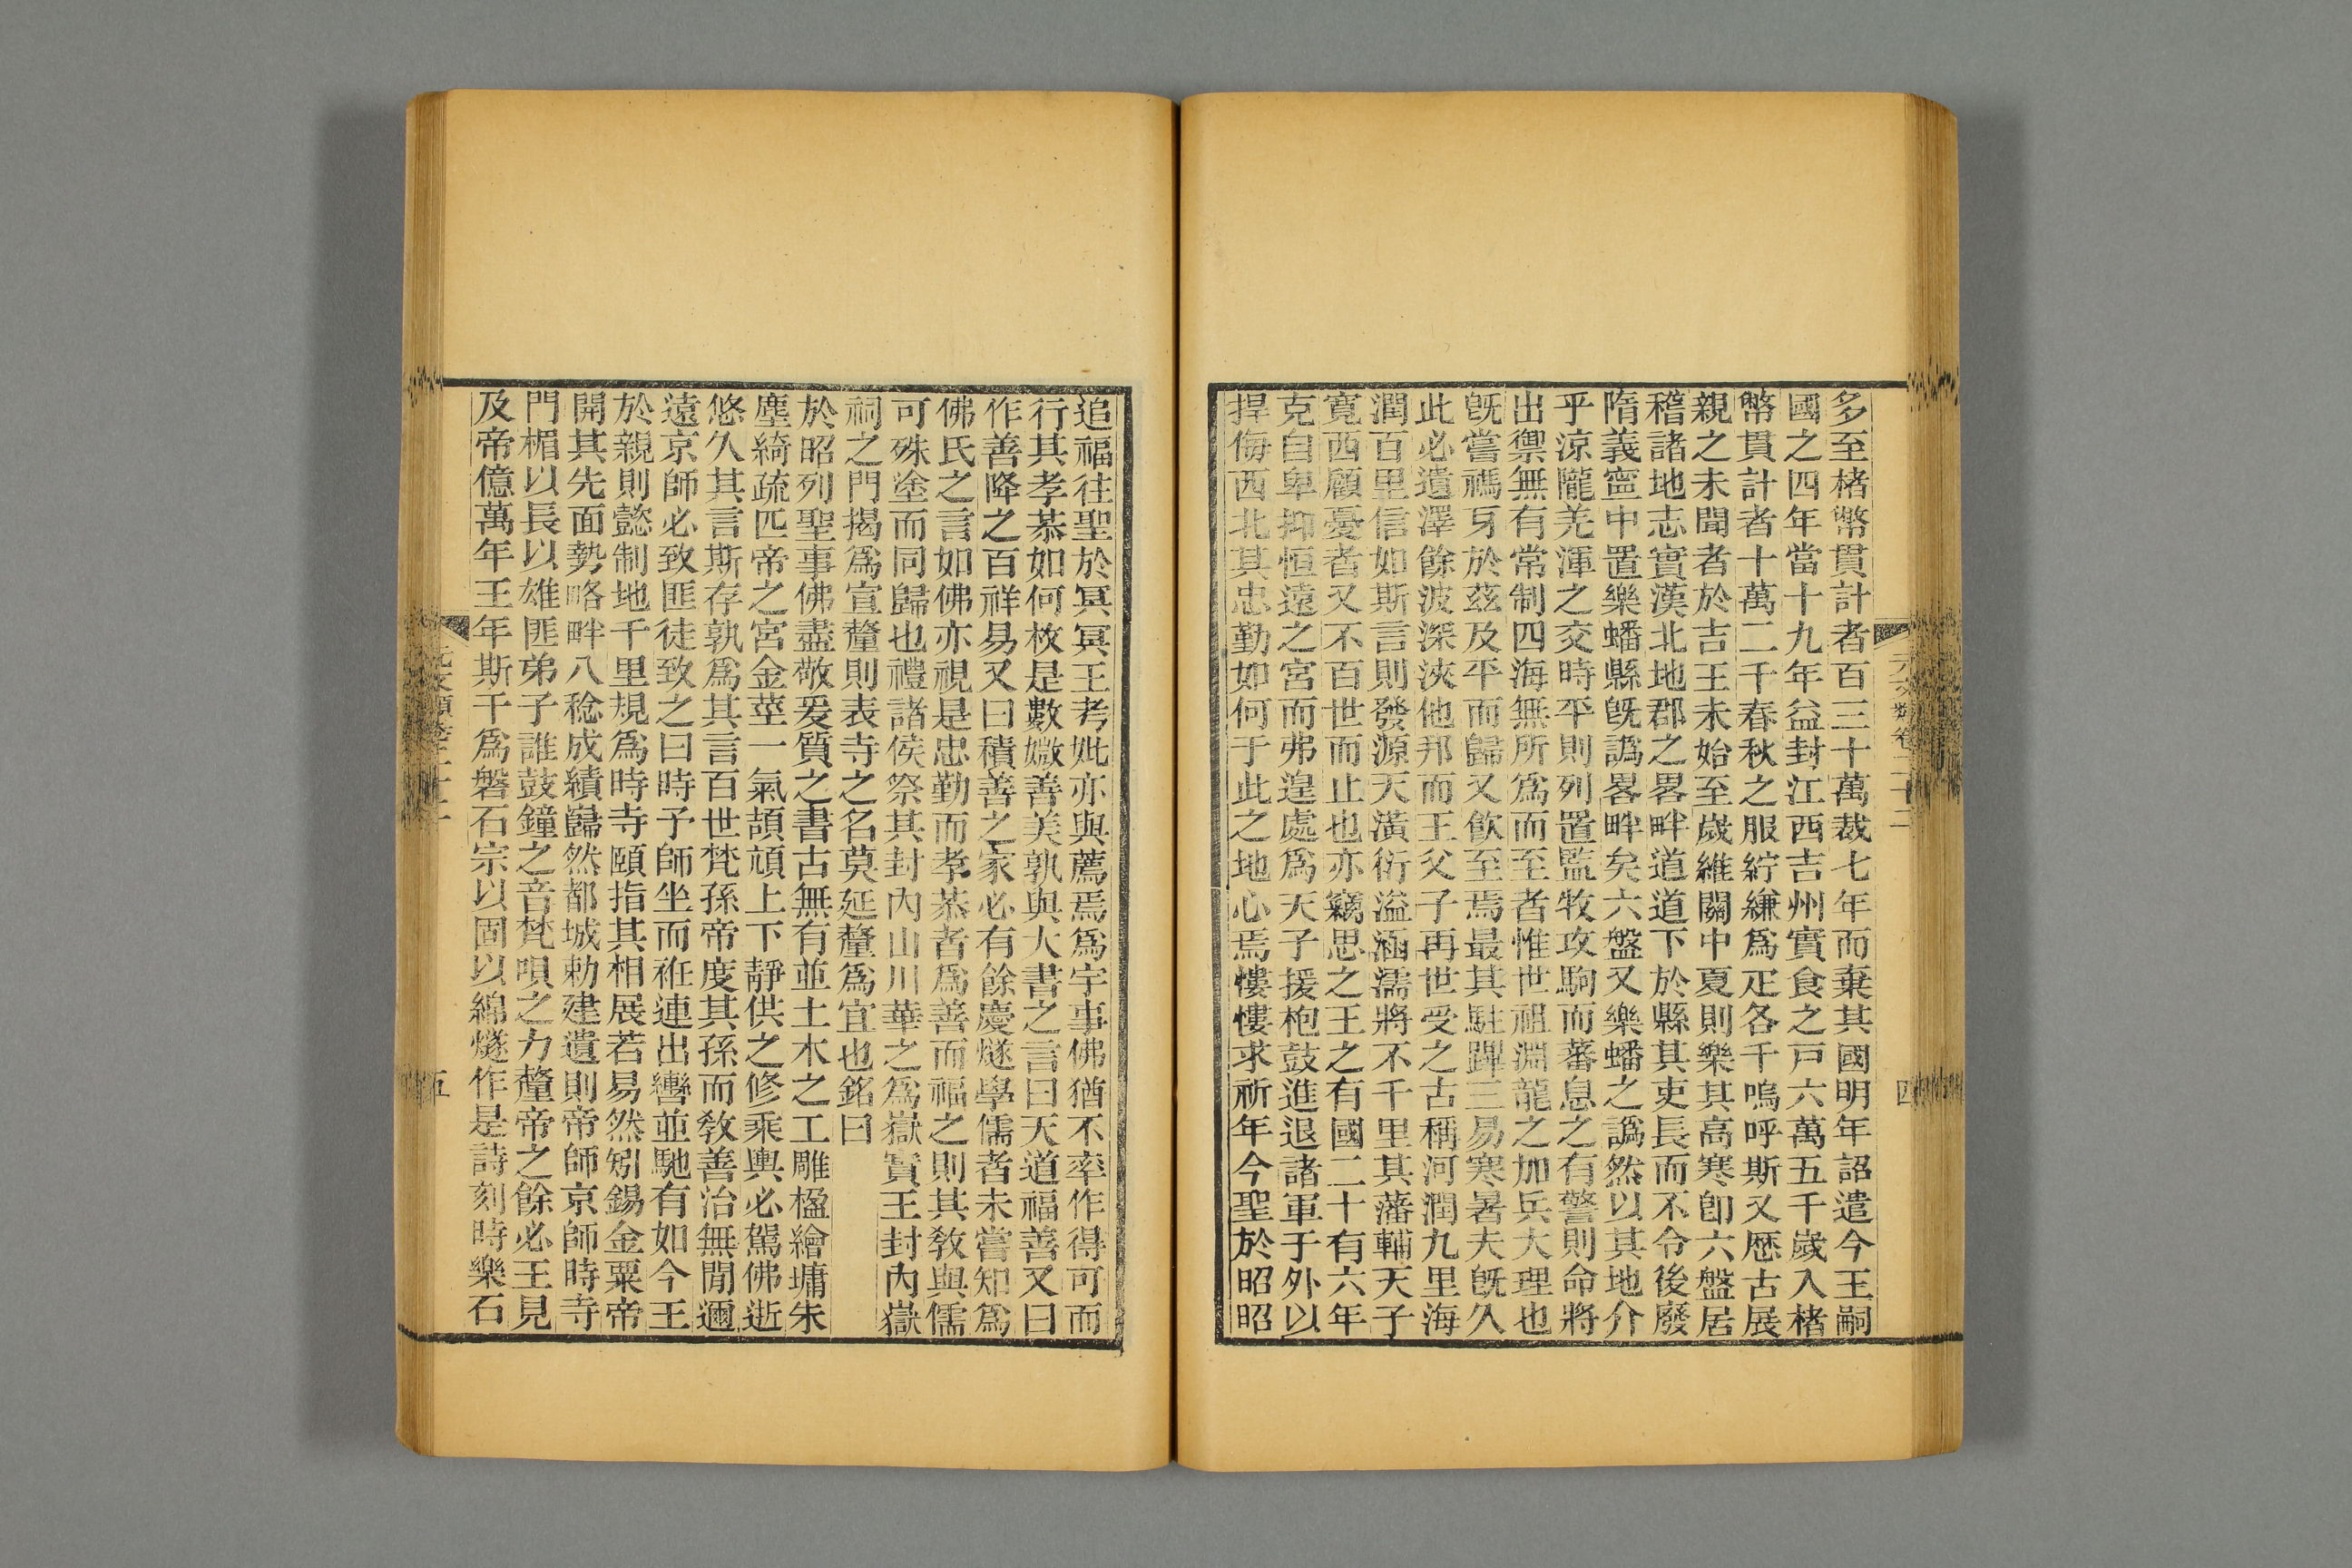 多至楮幣貫計者百三十萬裁七年而棄其國明年詔遣今王嗣
國之四年當十九年益封江西吉州實食之戸六萬五千歲入楮
幣貫計者十萬二千春秋之服紵縑爲疋各千嗚呼斯又歷古展
親之未聞者於吉王未始至歲維關中夏則樂其高寒卽六盤居
稽諸地志實漢北地郡之畧畔道道下於縣其吏長而不令後廢
隋義寧中置樂蟠縣旣譌畧畔矣六盤又樂蟠之譌然以其地介
乎涼隴羌渾之交時平則列置監牧攻駒而蕃息之有警則命將
出禦無有常制四海無所爲而至者惟世祖淵龍之加兵大理也
旣嘗禡牙於茲及平而歸又飮至焉最其駐蹕三易寒暑夫旣久
此必遺澤餘波深浹他邦而王父子再世受之古稱河潤九里海
潤百里信如斯言則發源天潢衍溢涵濡將不千里其藩輔天子
寛西顧憂者又不百世而止也亦竊思之王之有國二十有六年
克自卑抑恒遠之宮而弗遑處爲天子援枹鼓進退諸軍于外以
捍侮西北其忠勤如何于此之地心焉慺慺求祈年今聖於昭昭
元文類卷二十二
四
追福往聖於冥冥王考妣亦與薦焉爲宇事佛猶不率作得可而
行其孝恭如何枚是數媺善美孰與大書之言曰天道福善又曰
作善降之百祥易又曰積善之家必有餘慶燧學儒者未嘗知爲
佛氏之言如佛亦視是忠勤而孝恭者爲善而福之則其敎與儒
可殊塗而同歸也禮諸侯祭其封內山川華之爲嶽實王封內嶽
祠之門揭爲宣釐則表寺之名莫延釐爲宜也銘曰
於昭列聖事佛盡敬爰質之書古無有並土木之工雕楹繪墉朱
塵綺疏匹帝之宮金莖一氣頡頏上下靜供之修乘輿必駕佛逝
悠久其言斯存孰爲其言百世梵孫帝度其孫而敎善治無閒邇
遠京師必致匪徒致之曰時予師坐而袵連出轡並馳有如今王
於親則懿制地千里規爲時寺頤指其相展若易然矧錫金粟帝
開其先面勢略畔八稔成績巋然都城勅建遺則帝師京師時寺
門楣以長以雄匪弟子誰鼓鐘之音梵唄之力釐帝之餘必王見
及帝億萬年王年斯千爲磐石宗以固以綿燧作是詩刻時樂石
元文類卷二十二
五